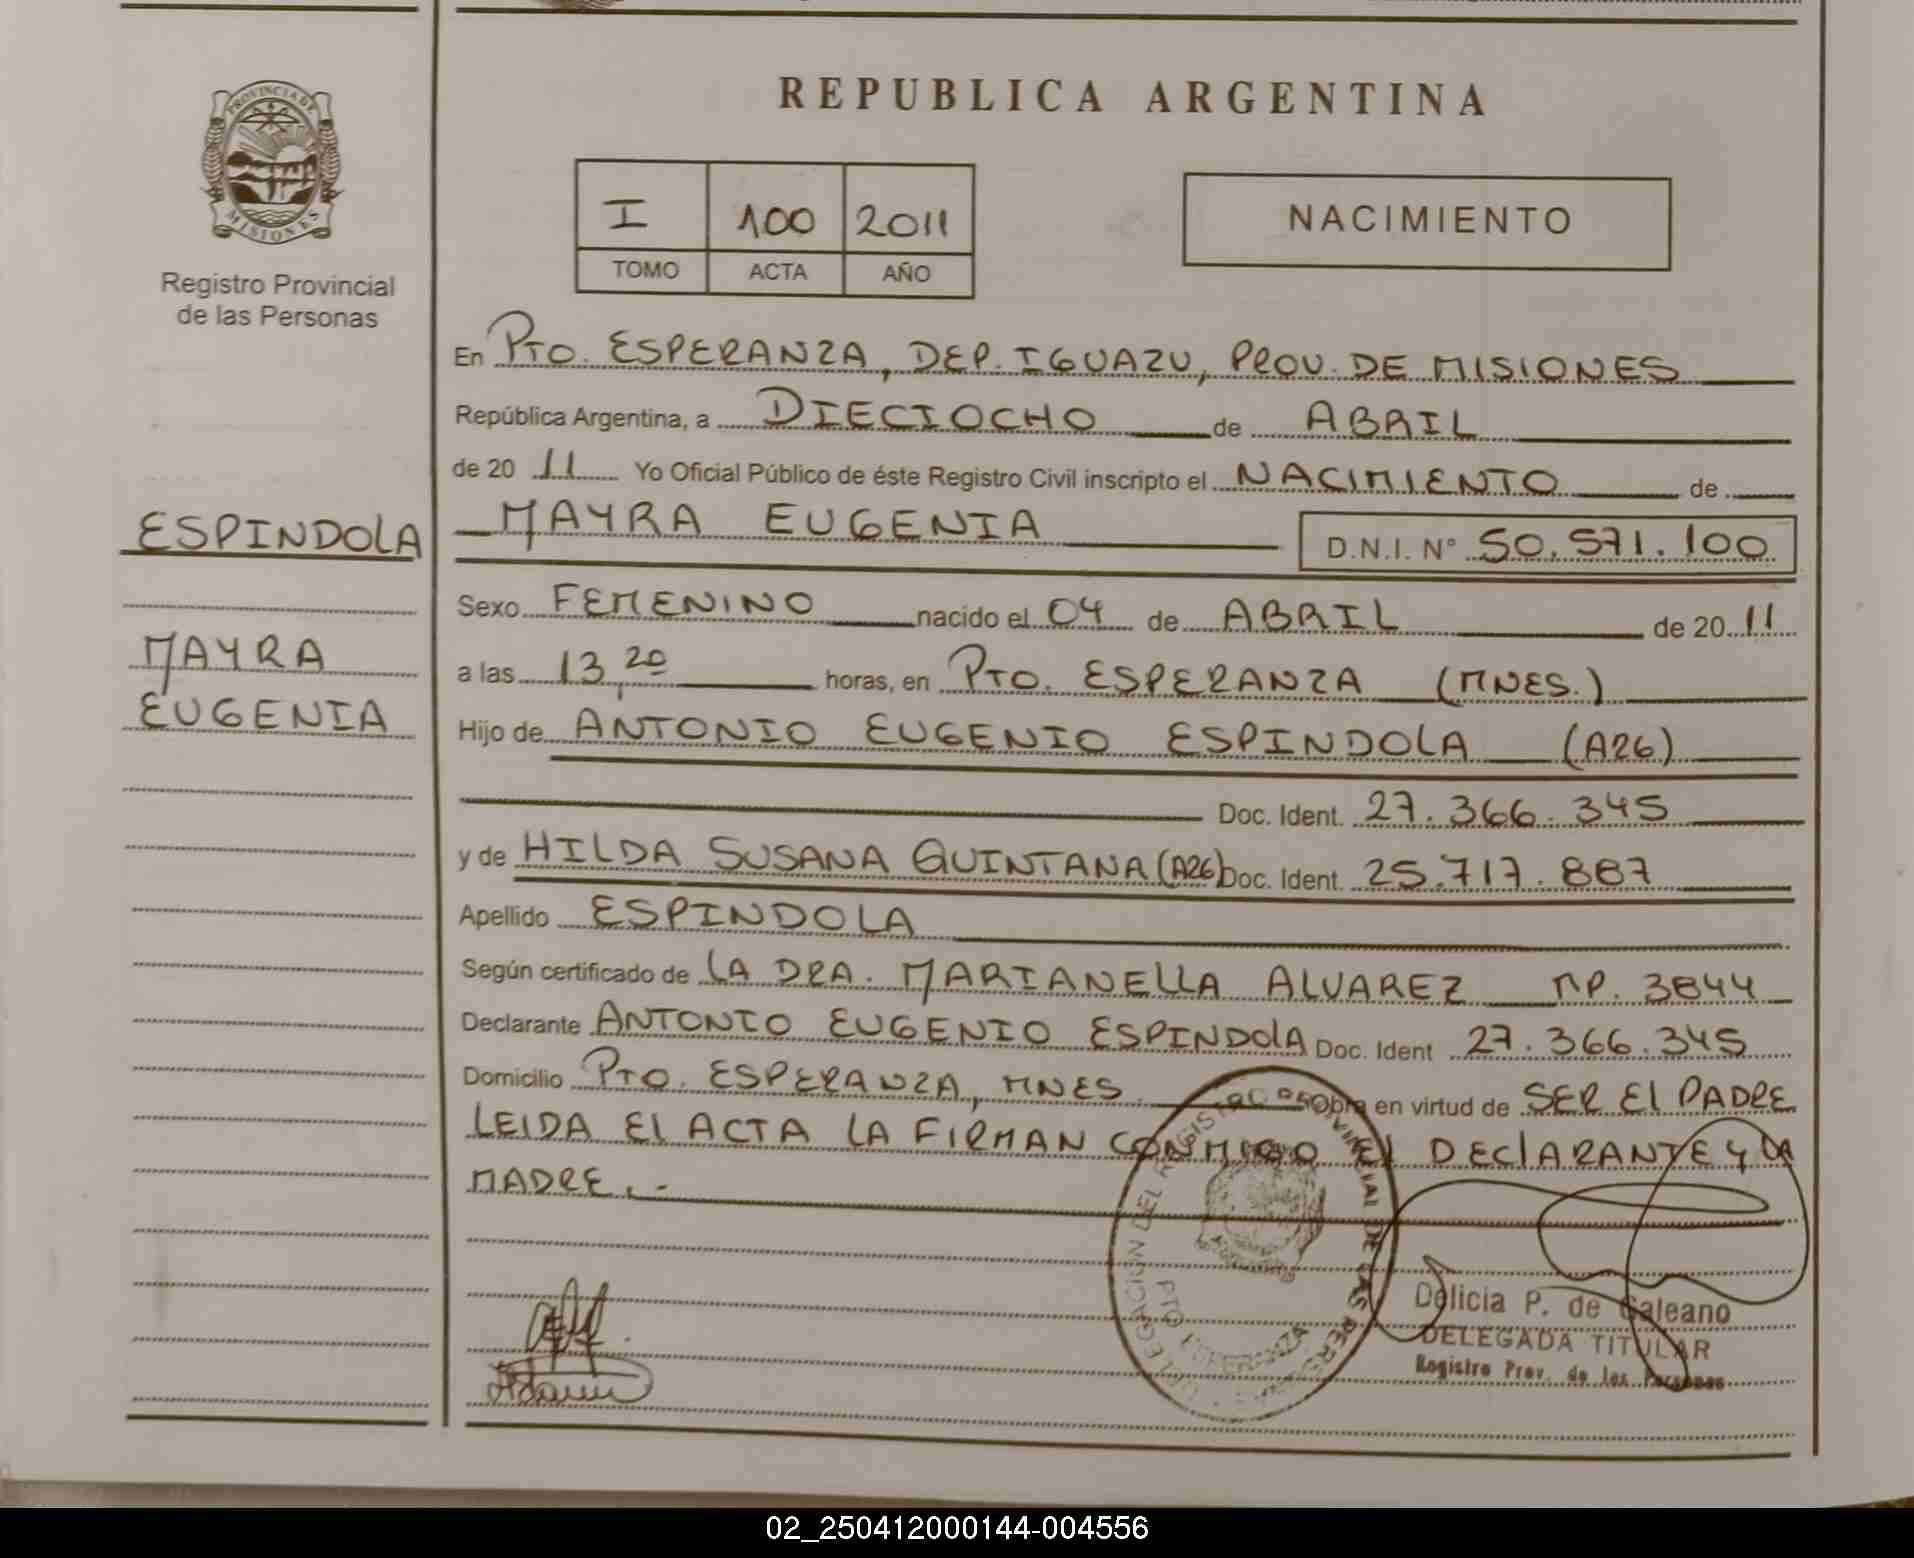 REPUBLICA ARGENTINA
PROVINCIA DE
MISIONES
Registro Provincial
de las Personas
I 100 2011
TOMO ACTA AÑO
NACIMIENTO
En PTO. ESPERANZA, DEP. IGUAZU, PROV. DE MISIONES
República Argentina, a DIECIOCHO de ABRIL
de 20 11 Yo Oficial Público de éste Registro Civil inscripto el NACIMIENTO de
ESPINDOLA
MAYRA EUGENIA D.N.I. N° 50.571.100
Sexo FEMENINO nacido el 04 de ABRIL de 20 11
MAYRA
EUGENIA
a las 13,20 horas, en PTO. ESPERANZA (MNES.)
Hijo de ANTONIO EUGENIO ESPINDOLA (A26)
Doc. Ident. 27.366.345
y de HILDA SUSANA QUINTANA (A26) Doc. Ident. 25.717.887
Apellido ESPINDOLA
Según certificado de LA DRA. MARIANELLA ALVAREZ MP. 3844
Declarante ANTONIO EUGENIO ESPINDOLA Doc. Ident 27.366.345
Domicilio PTO. ESPERANZA, MNES Obra en virtud de SER El PADRE
LEIDA El ACTA LA FIRMAN CONMIGO El DEClARANTE Y LA
MADRE.-
DELEGACION DEL REGISTRO PROVINCIAL DE LAS PERS
PTO ESPERANZA
Delicia P. de Galeano
DELEGADA TITULAR
Registro Prov. de las Personas
02_250412000144-004556